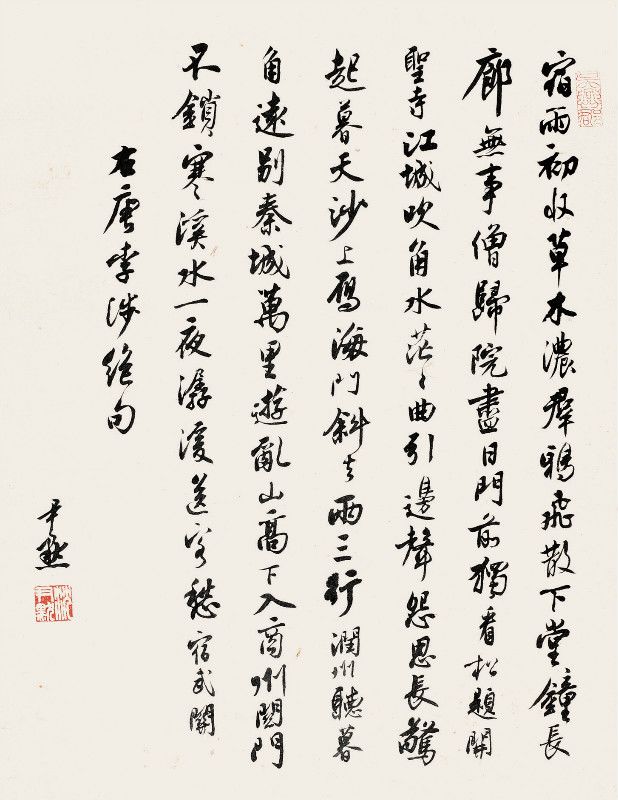 宿雨初收草木濃群鴉飛散下堂鐘長
廊無事僧歸院盡日門前獨看松題開
聖寺江城吹角水茫〻曲引邊聲怨思長驚
起暮天沙上鴈海門斜去兩三行潤州聽暮
角遠別秦城萬里遊亂山高下入商州關門
不鎖寒溪水一夜潺湲送客愁宿武關
右唐李涉絕句
尹默